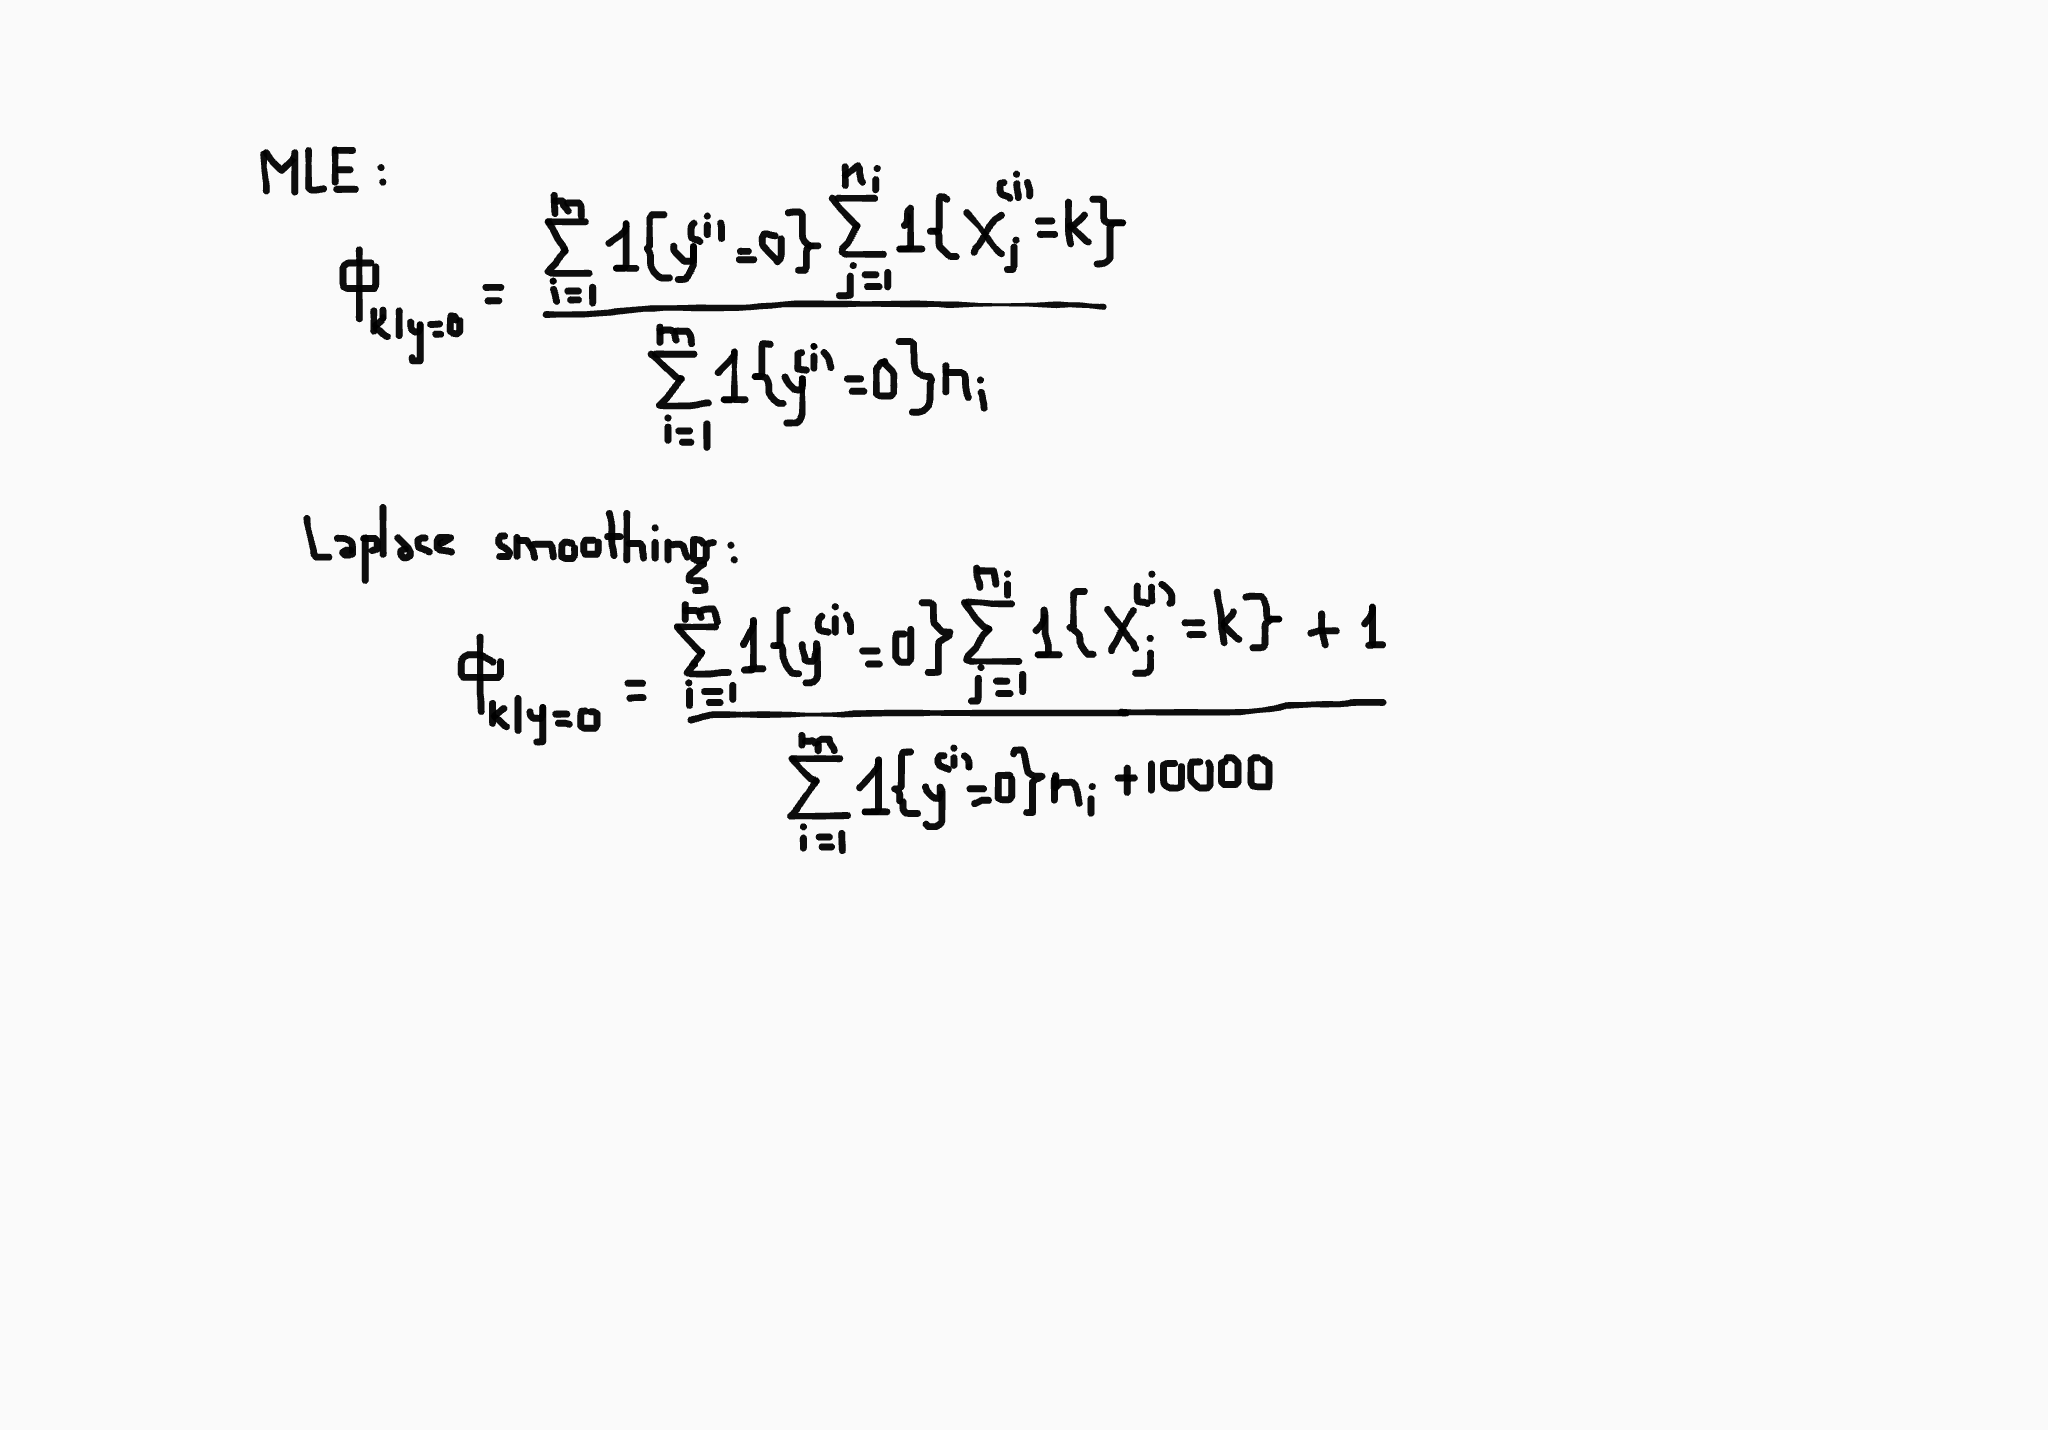 MLE:
ϕ_{k|y=0} = \frac{\sum_{i=1}^{m} 1\{y^{(i)}=0\} \sum_{j=1}^{n_i} 1\{x_j^{(i)}=k\}}{\sum_{i=1}^{m} 1\{y^{(i)}=0\} n_i}
Laplace smoothing:
ϕ_{k|y=0} = \frac{\sum_{i=1}^{m} 1\{y^{(i)}=0\} \sum_{j=1}^{n_i} 1\{x_j^{(i)}=k\} + 1}{\sum_{i=1}^{m} 1\{y^{(i)}=0\} n_i + 10000}